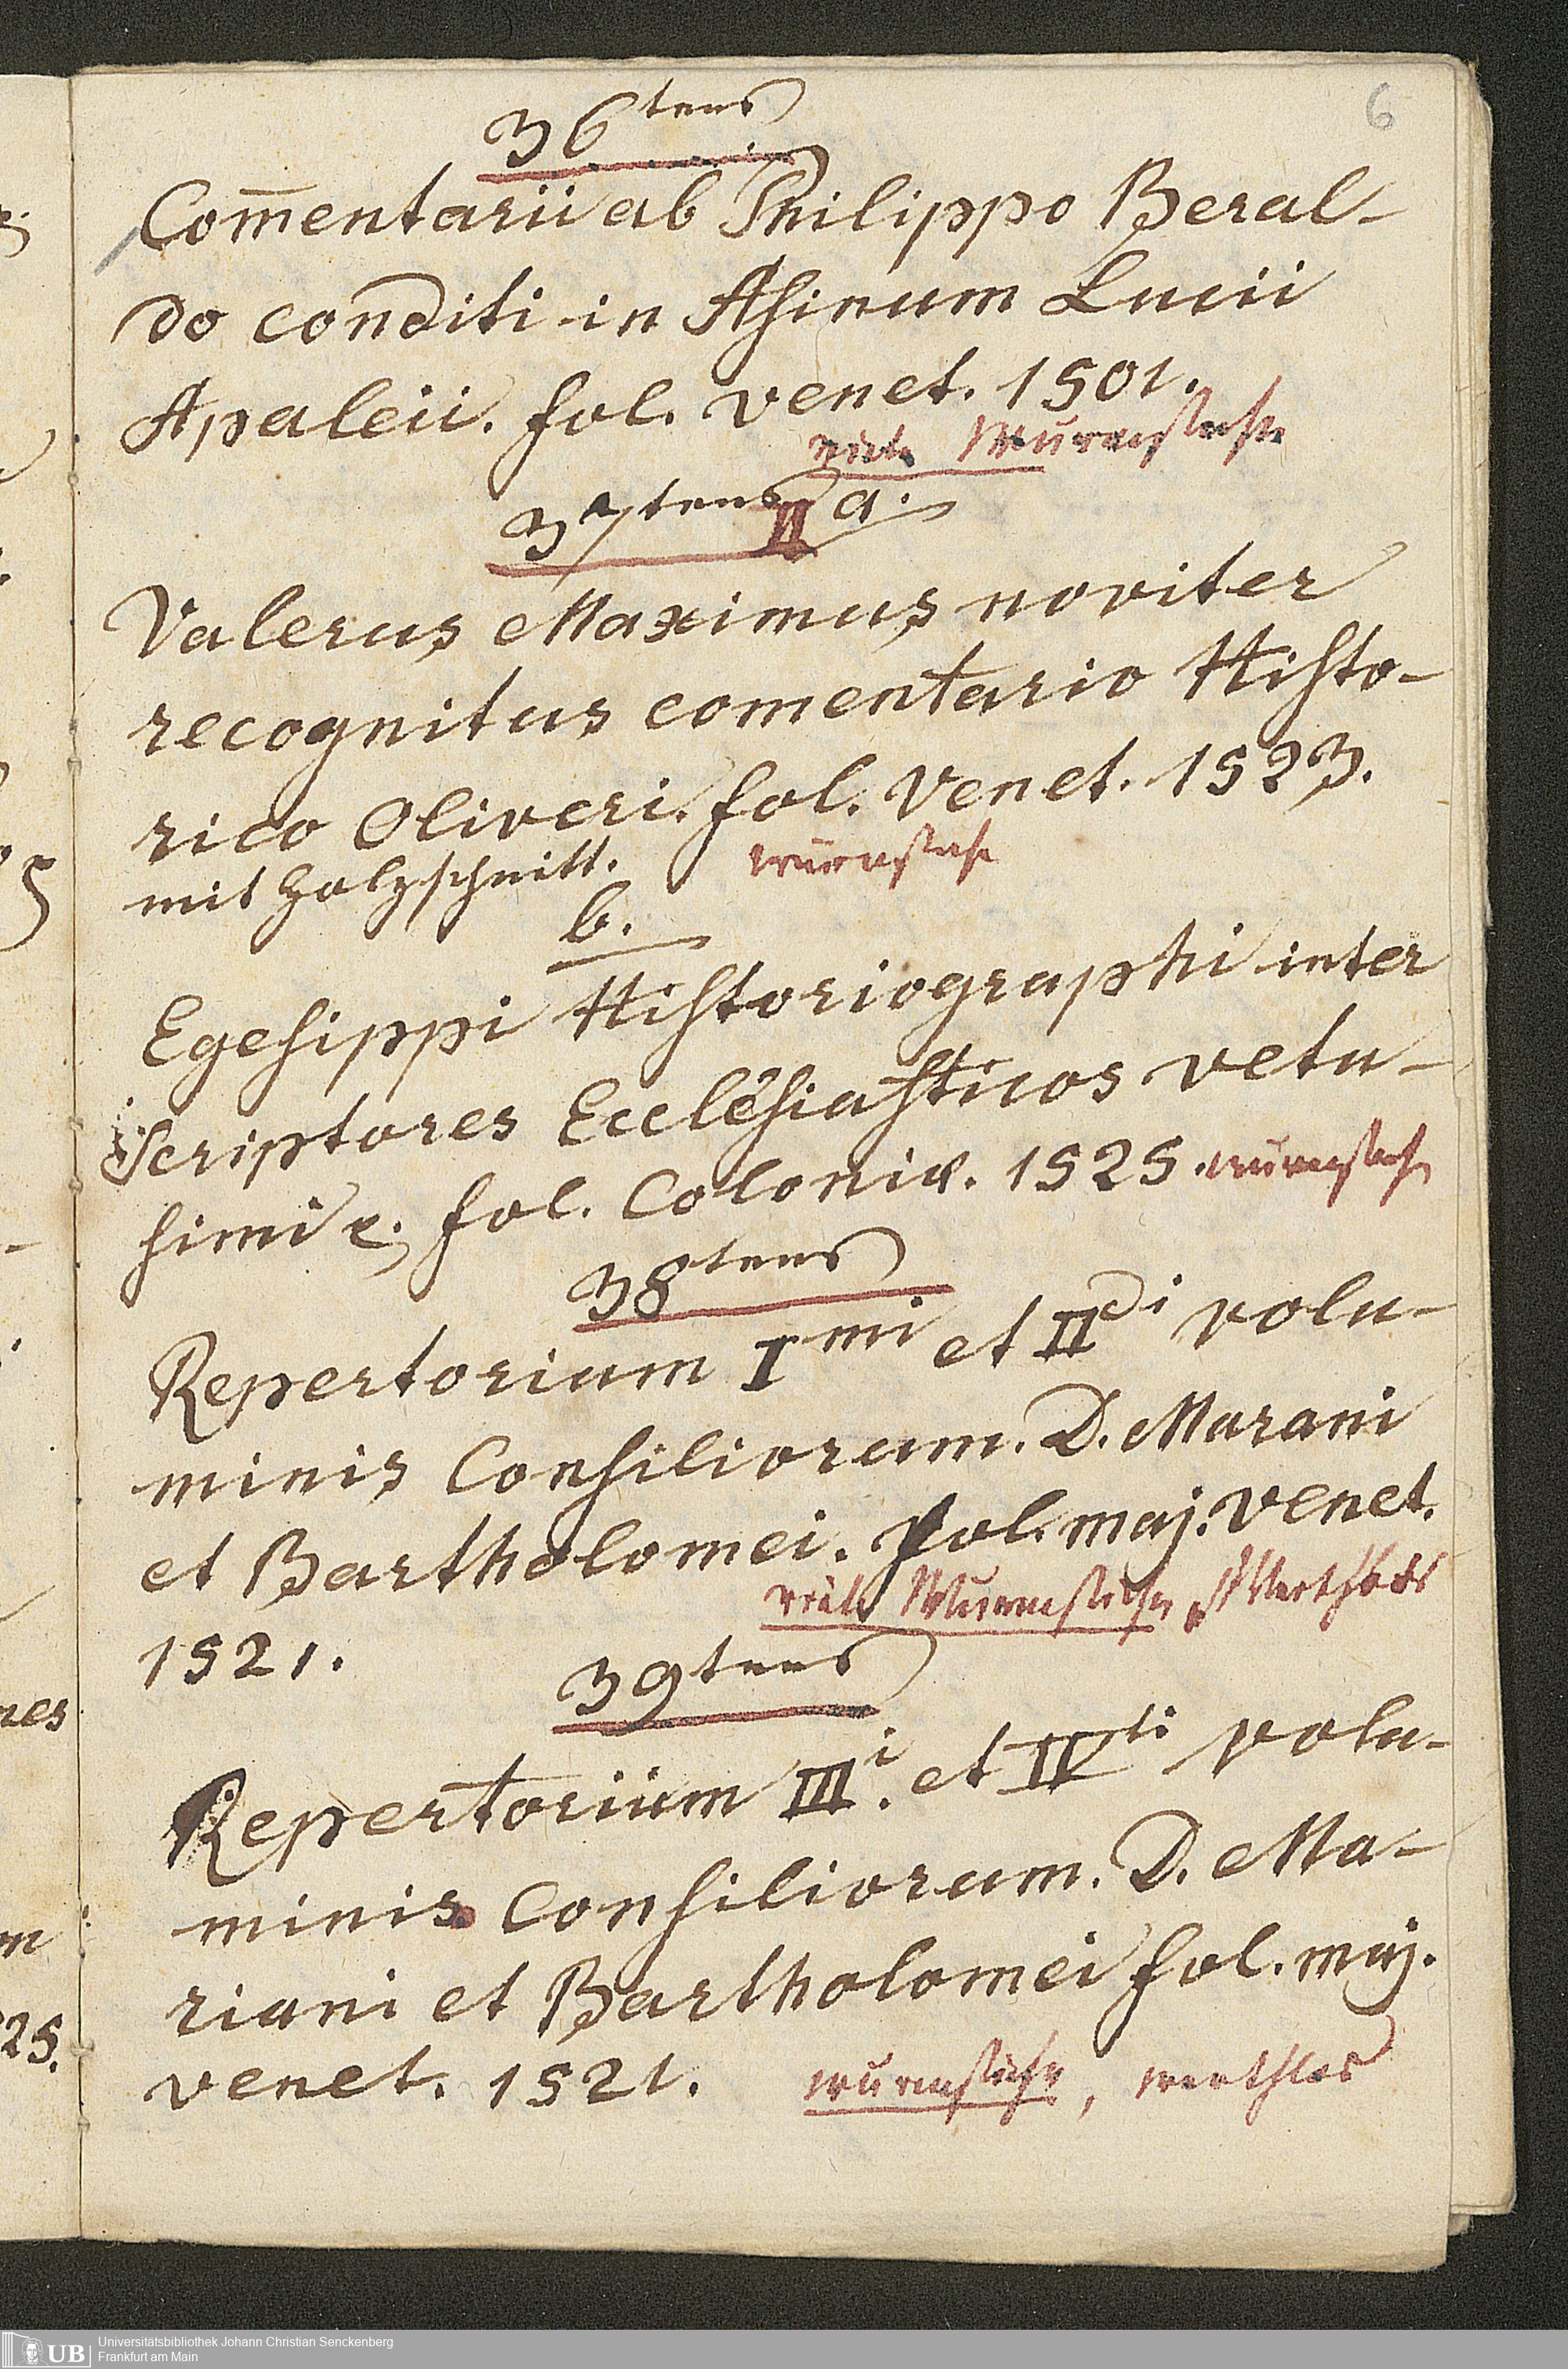 6
36tens
Com̅entarii ab Philippo Beral-
do conditi in Asinum Lucii
Apaleii. fol. venet. 1501.
viele Wurmstiche
37tens II a.
Valerus Maximus noviter
recognitus comentario Histo-
rico Oliveri. fol. Venet. 1523.
mit Holzschnitt. wurmstich
b.
Egesippi Historiographi inter
Scriptores Ecclesiasticos vetu-
simi fol. Coloniæ. 1525. wurmstich
38tens
Repertorium Imi et IIdi volu-
minis Consiliorum. D. Marani
et Bartholomei. fol. maj. venet.
viele Wurmstiche, Werthlos
1521.
39tens
Repertorium IIIi. et IVti volu-
minis Consiliorum. D. Ma-
riani et Bartholomei fol. maj.
venet. 1521. wurmstich, werthlos
nes
m
25.
UB Universitätsbibliothek Johann Christian Senckenberg
Frankfurt am Main